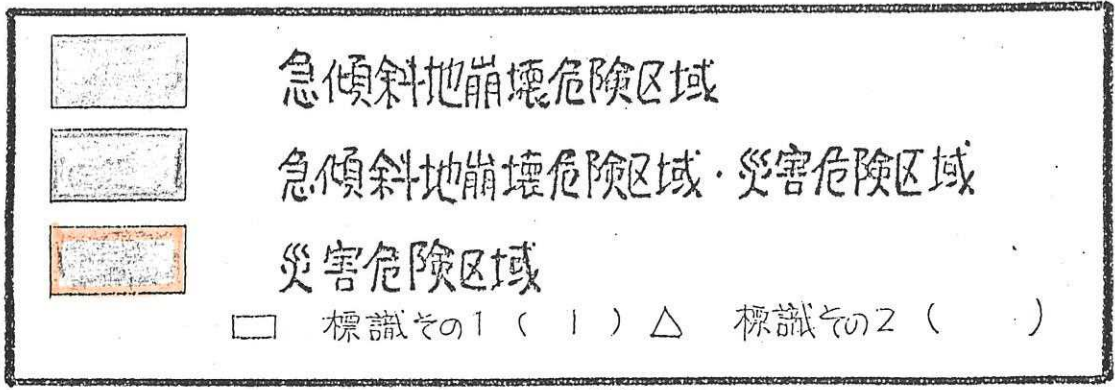 急傾斜地崩壊危険区域
急傾斜地崩壊危険区域・災害危険区域
災害危険区域
□ 標識その1 ( 1 ) △ 標識その2 ( )